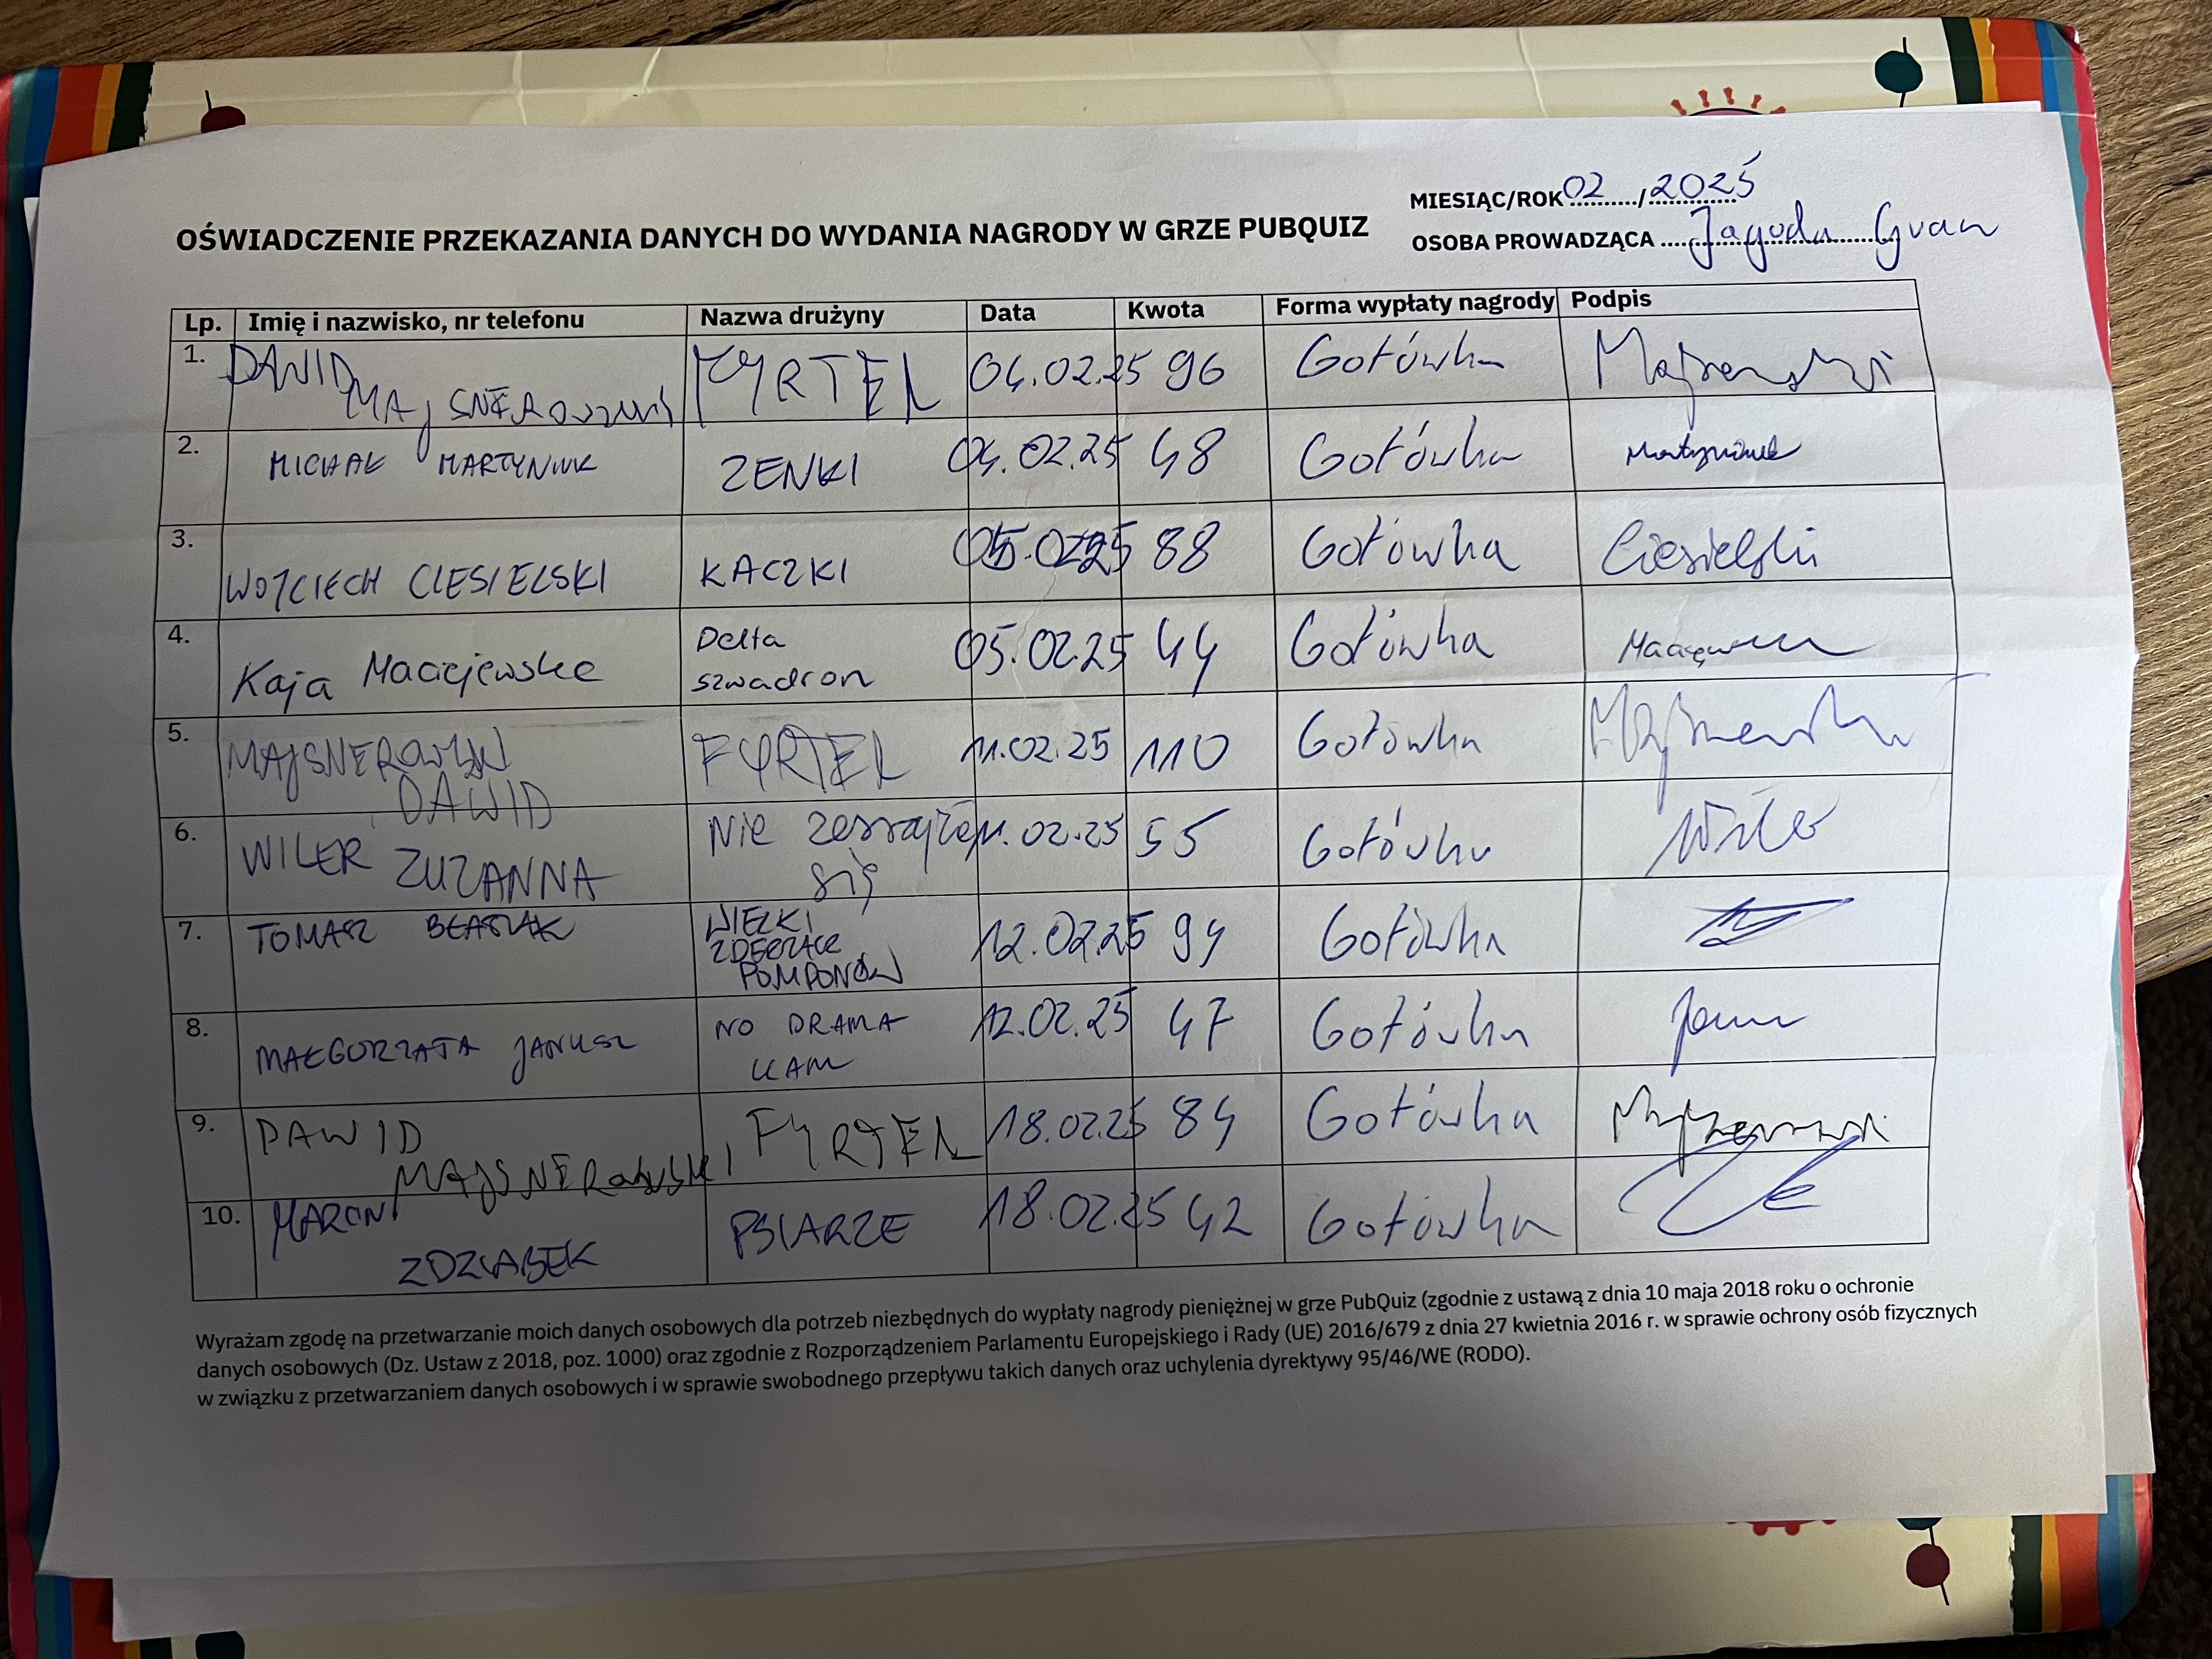 MIESIĄC/ROK 02/2025
OŚWIADCZENIE PRZEKAZANIA DANYCH DO WYDANIA NAGRODY W GRZE PUBQUIZ
OSOBA PROWADZĄCA Jagoda
Lp. Imię i nazwisko, nr telefonu Nazwa drużyny Data Kwota Forma wypłaty nagrody Podpis
1. DAWID FYRTEL 04.02.25 96 Gotówka
2. MICHAŁ MARTYNIUK ZENKI 04.02.25 48 Gotówka Martyniuk
3. WOJCIECH CIESIELSKI KACZKI 05.02.25 88 Gotówka Ciesielski
4. Kaja Maciejewska Delta
szwadron 05.02.25 44 Gotówka
5. FYRTEL 11.02.25 110 Gotówka
DAWID
6. WILER ZUZANNA Nie zesrajcie
się 11.02.25 55 Gotówka
7. TOMASZ WIELKI
ZDERZACZ
POMPONÓW 12.02.25 94 Gotówka
8. MAŁGORZATA JANUSZ NO DRAMA
LLAMA 12.02.25 47 Gotówka
9. DAWID FYRTEL 18.02.25 84 Gotówka
10. MARCIN PSIARZE 18.02.25 42 Gotówka
Wyrażam zgodę na przetwarzanie moich danych osobowych dla potrzeb niezbędnych do wypłaty nagrody pieniężnej w grze PubQuiz (zgodnie z ustawą z dnia 10 maja 2018 roku o ochronie
danych osobowych (Dz. Ustaw z 2018, poz. 1000) oraz zgodnie z Rozporządzeniem Parlamentu Europejskiego i Rady (UE) 2016/679 z dnia 27 kwietnia 2016 r. w sprawie ochrony osób fizycznych
w związku z przetwarzaniem danych osobowych i w sprawie swobodnego przepływu takich danych oraz uchylenia dyrektywy 95/46/WE (RODO).